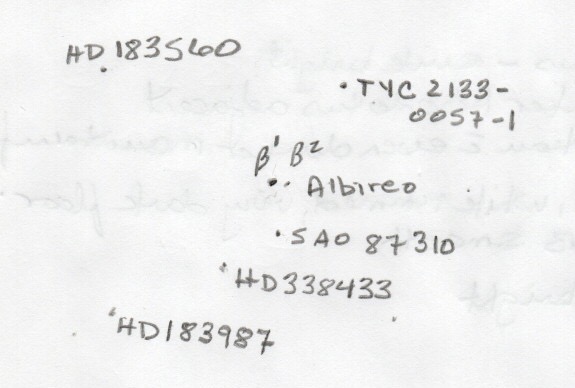 HD 183560
TYC 2133-
0057-1
β¹ β²
Albireo
SAO 87310
HD338433
HD183987